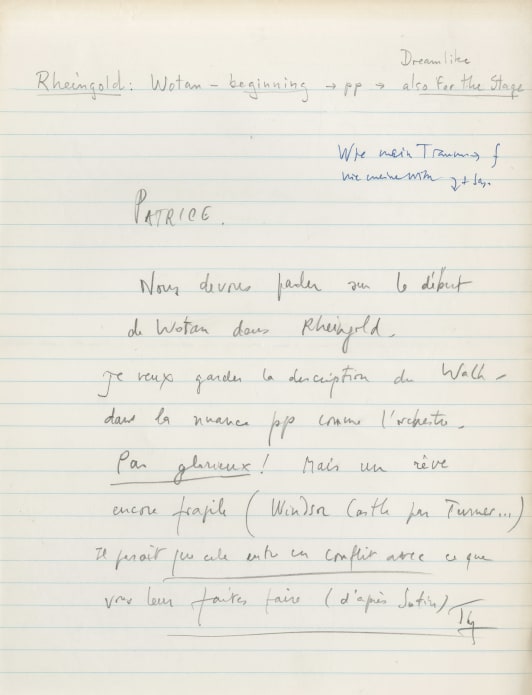 Dreamlike
Rheingold: Wotan – beginning → pp → also for the Stage
Wie mein Traum → f
wie meine
PATRICE.
Nous devons parler sur le début
de Wotan dans Rheingold.
Je veux garder la description du Walh –
dans la nuance pp comme l'orchestre.
Pas glorieux! Mais un rêve
encore fragile (Windsor Castle par Turner...)
Il paraît que cela entre en conflit avec ce que
vous leur faites faire (d'après Sotin)